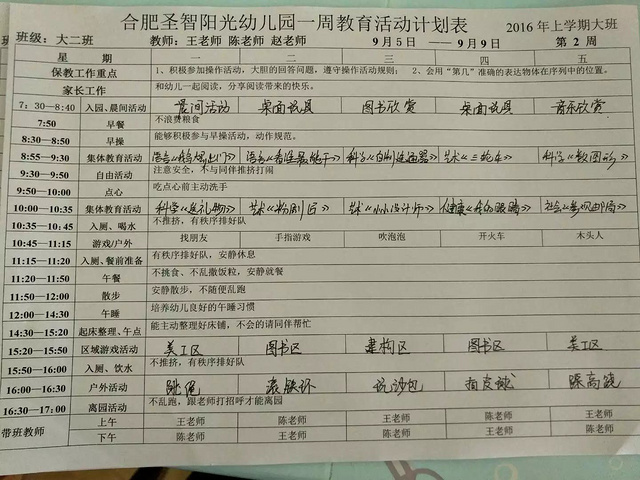 合肥圣智阳光幼儿园一周教育活动计划表
班级：大二班 教师：王老师 陈老师 赵老师 9月5日 ——9月9日 2016年上学期大班 第2周
星 期 一 二 三 四 五
保教工作重点 1、积极参加操作活动，大胆的回答问题，遵守操作活动规则； 2、会用“第几”准确的表达物体在序列中的位置。
家长工作 和幼儿一起阅读，分享阅读带来的快乐。
7：30—8:40 入园、晨间活动 晨间活动 桌面玩具 图书欣赏 桌面玩具 音乐欣赏
7:50 早餐 不浪费粮食
8:30—8:50 早操 能够积极参与早操活动，动作规范。
8:55—9:30 集体教育活动 语言 语言《看谁最能干》 科学 艺术《三轮车》 科学《数图形》
9:30—9:50 自由活动 注意安全，不与同伴推挤打闹
9:50—10:00 点心 吃点心前主动洗手
10:00—10:35 集体教育活动 科学《送礼物》 艺术 艺术《小小设计师》 健康《我的眼睛》 社会《参观邮局》
10:35—10:45 入厕、喝水 不推挤，有秩序排好队
10:45—11:15 游戏/户外 找朋友 手指游戏 吹泡泡 开火车 木头人
11:15—11:20 入厕、餐前准备 有秩序排好队，安静休息
11:20—11:50 午餐 不挑食、不乱撒饭粒，安静就餐
11:50—12:00 散步 安静散步，不随便乱跑
12:00—14:30 午睡 培养幼儿良好的午睡习惯
14:30—15:20 起床整理、午点 能主动整理好床铺，不会的请同伴帮忙
15:20—15:50 区域游戏活动 美工区 图书区 建构区 图书区 美工区
15:50—16:00 入厕、饮水 不推挤，有秩序排好队
16:00—16:30 户外活动 跳绳 滚铁环 玩沙包 拍皮球 踩高跷
16:30—17:00 离园活动 不乱跑，跟老师打招呼才能离园
带班教师 上午 王老师 陈老师 王老师 陈老师 王老师
下午 陈老师 王老师 陈老师 王老师 陈老师